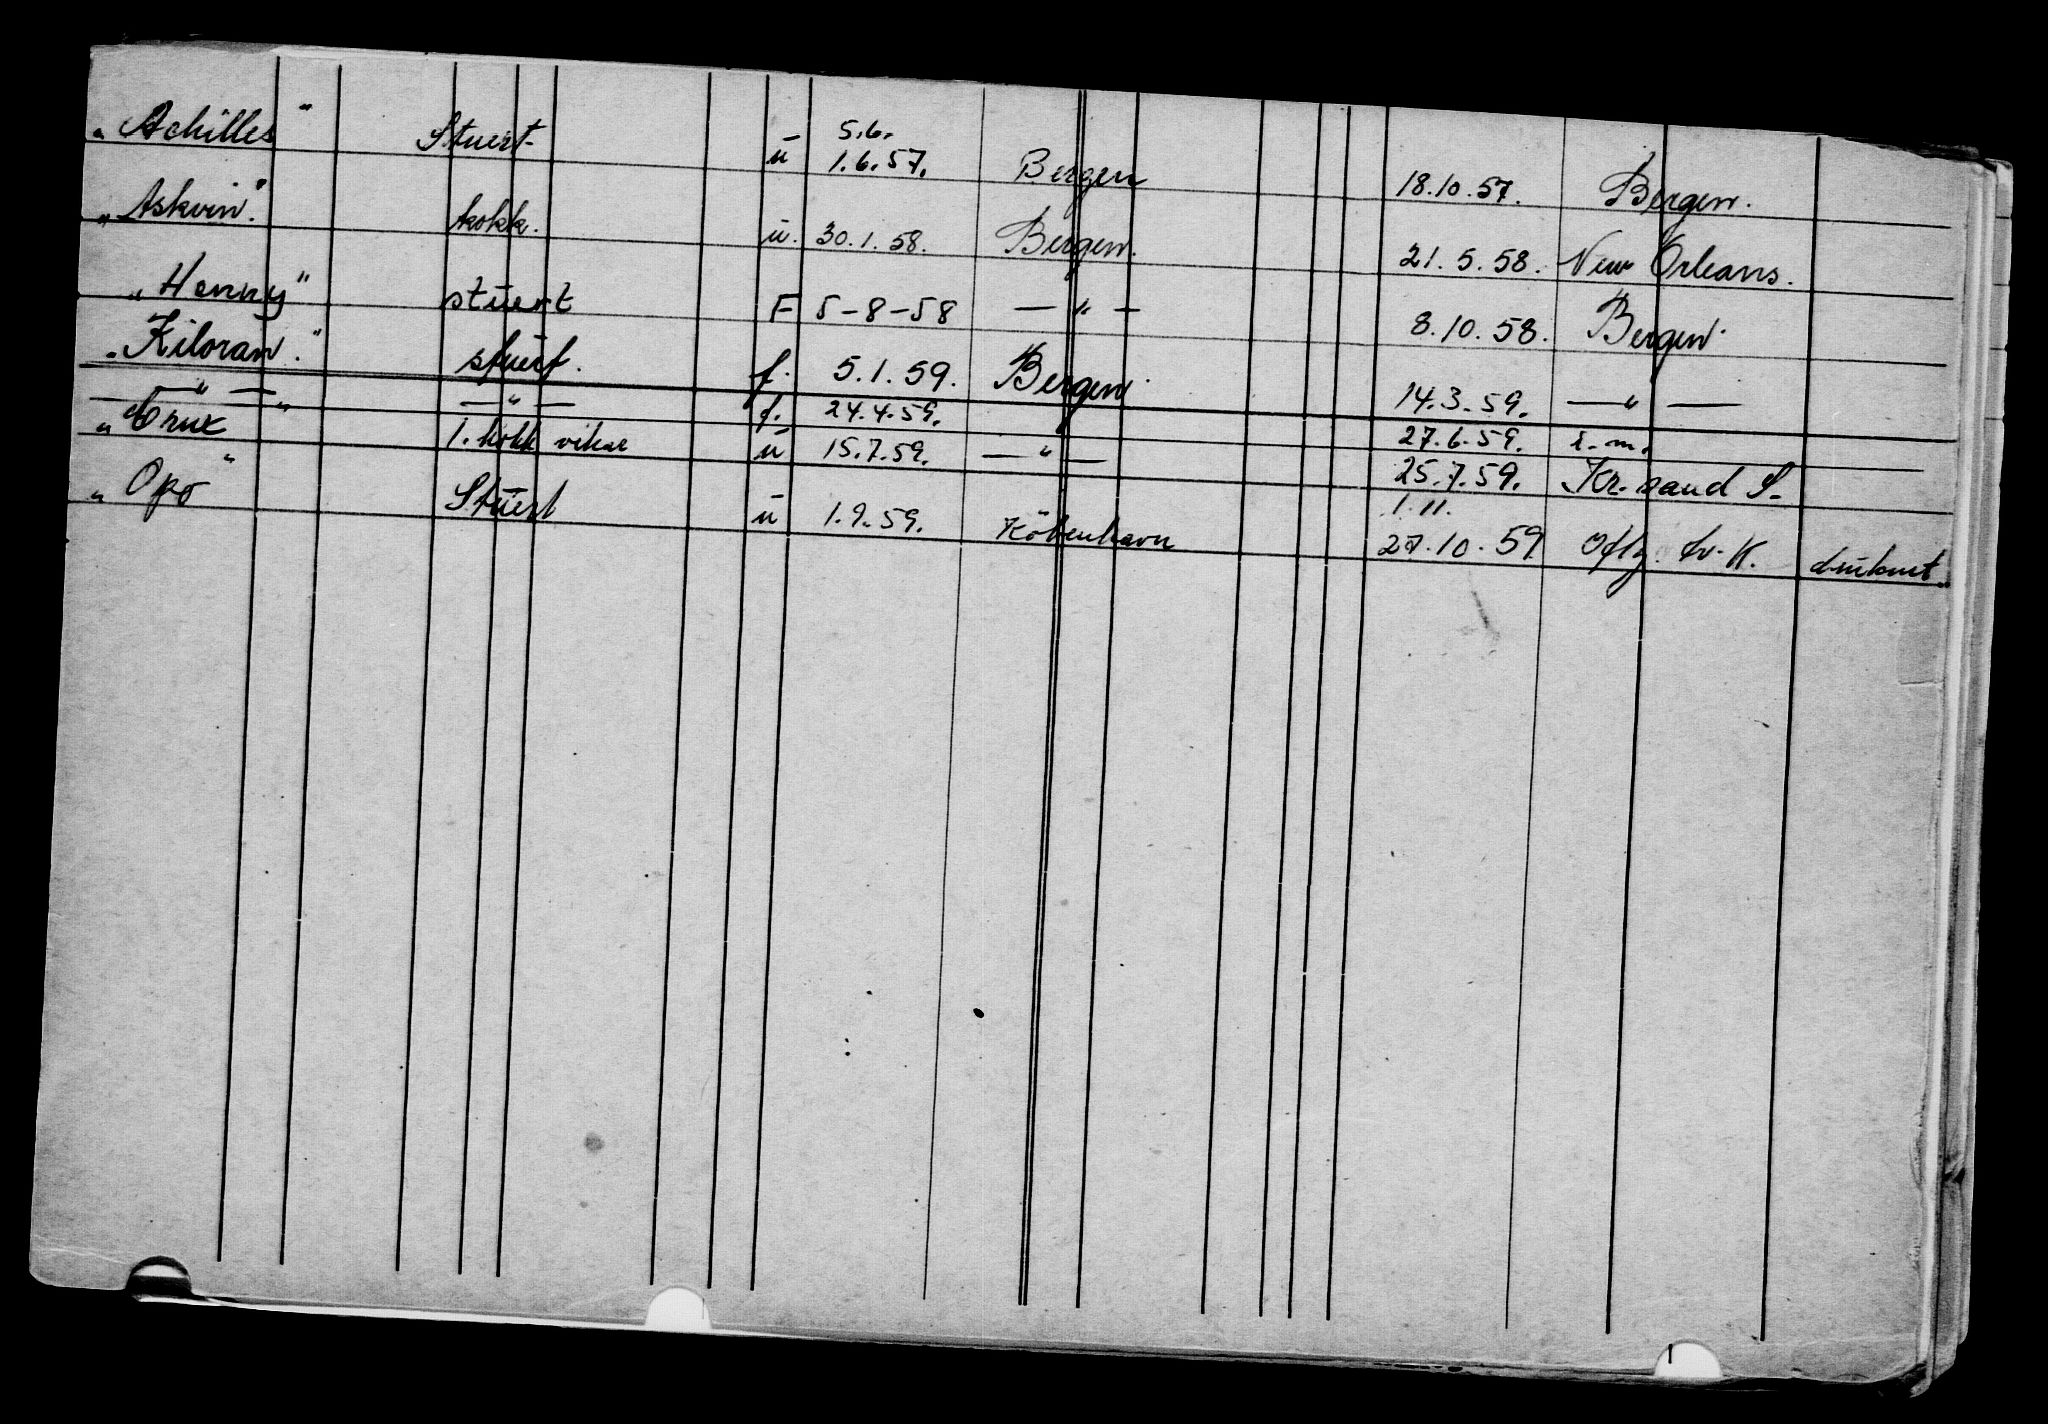 „Achilles" Stuert ü 5.6. 1.6.57. Bergen 18.10.57. Bergen.
„Askvin". kokk. ü. 30.1.58. Bergen. 21.5.58. New Orleans.
„Henny" stuert F 5-8-58 — „ — 8.10.58. Bergen.
„Kiloran." stuert. f. 5.1.59. Bergen. 14.3.59. — „ —
— „ — — „ — f. 24.4.59. 27.6.59. i.m.
„Crux" 1. kokk vikar ü 15.7.59. — „ — 25.7.59. Kr.sand S.
„Opo" Stuert ü 1.9.59. Köbenhavn 1.11. 27.10.59